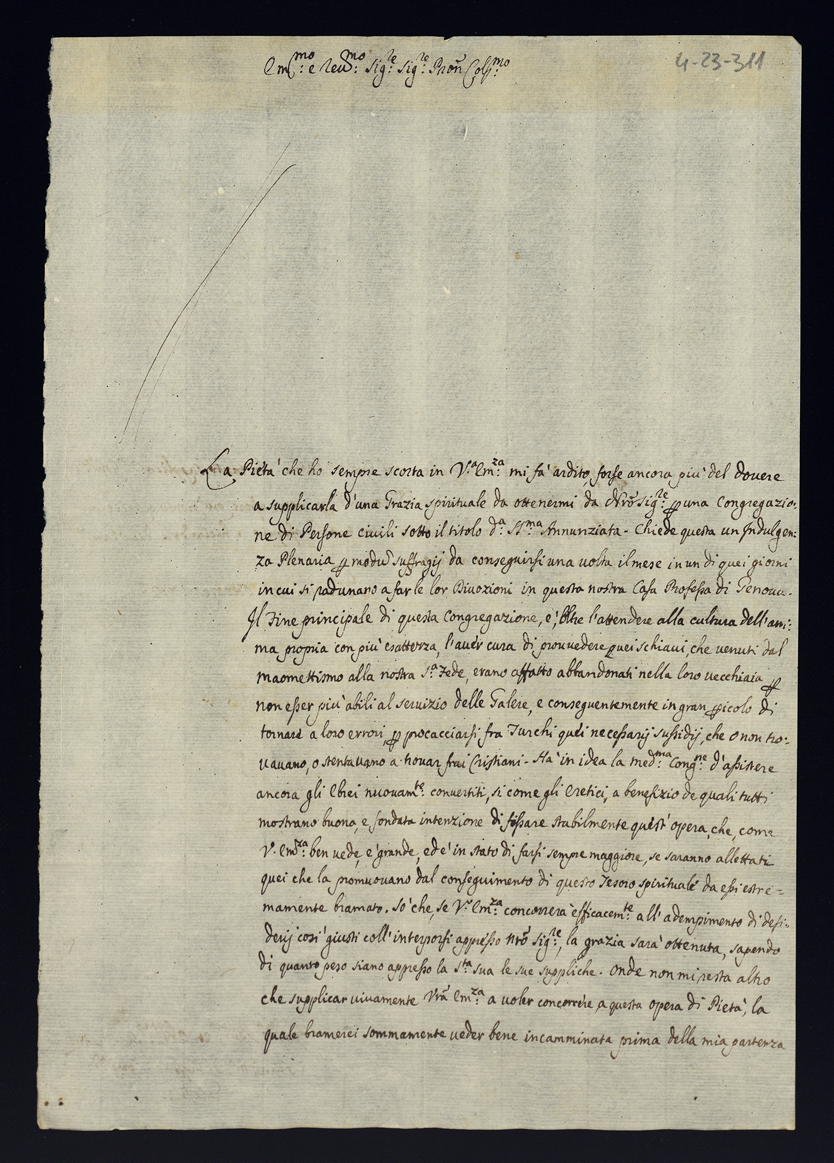 Em.mo e Reu.mo Sig.re Sig.re Pron Col.mo
4-23-311
La Pietà che ho sempre scorta in V.a Em.za mi fà ardito, forse ancora più del douere
a supplicarla d'una Grazia spirituale da ottenermi da Nrõ Sig.re p una Congregazio:
ne di Persone ciuili sotto il titolo d.a SS.ma Annunziata. Chiede questa un Indulgen:
za Plenaria p modũ suffragij da conseguirsi una uolta il mese in un di quei giorni
in cui si radunano a far le lor Diuozioni in questa nostra Casa Professa di Genoua.
Il Fine principale di questa Congregazione, è, oltre l'attendere alla cultura dell'ani:
ma propria con più esattezza, l'auer cura di prouuedere quei schiaui, che uenuti dal
maomettismo alla nostra S.a Fede, erano affatto abbandonati nella loro uecchiaia p
non esser più abili al seruizio delle Galere, e conseguentemente in gran picolo di
tornare a loro errori, p procacciarsi fra Turchi quei necessarij sussidij, che o non tro:
uauano, o stentauano a trouar frai Cristiani. Hà in idea la med.ma Cong.ne d'assistere
ancora gli Ebrei nuouam.te conuertiti, si come gli Eretici, a benefizio de quali tutti
mostrano buona, e fondata intenzione di fissare stabilmente quest'opera, che, come
V.a Em.za ben uede, è grande, ed è in stato di farsi sempre maggiore, se saranno allettati
quei che la promuouano dal conseguimento di questo Tesoro spirituale da essi estre=
mamente bramato. Sò che, se V.a Em.za concorrerà efficacem.te all'adempimento di desi:
derij così giusti coll'interporsi appresso Nrõ Sig.re, la grazia sarà ottenuta, sapendo
di quanto peso siano appresso la S.tà sua le sue suppliche. Onde non mi resta altro
che supplicar uiuamente Vrã Em.za a uoler concorrere a questa opera di Pietà, la
quale bramerei sommamente ueder bene incamminata prima della mia partenza